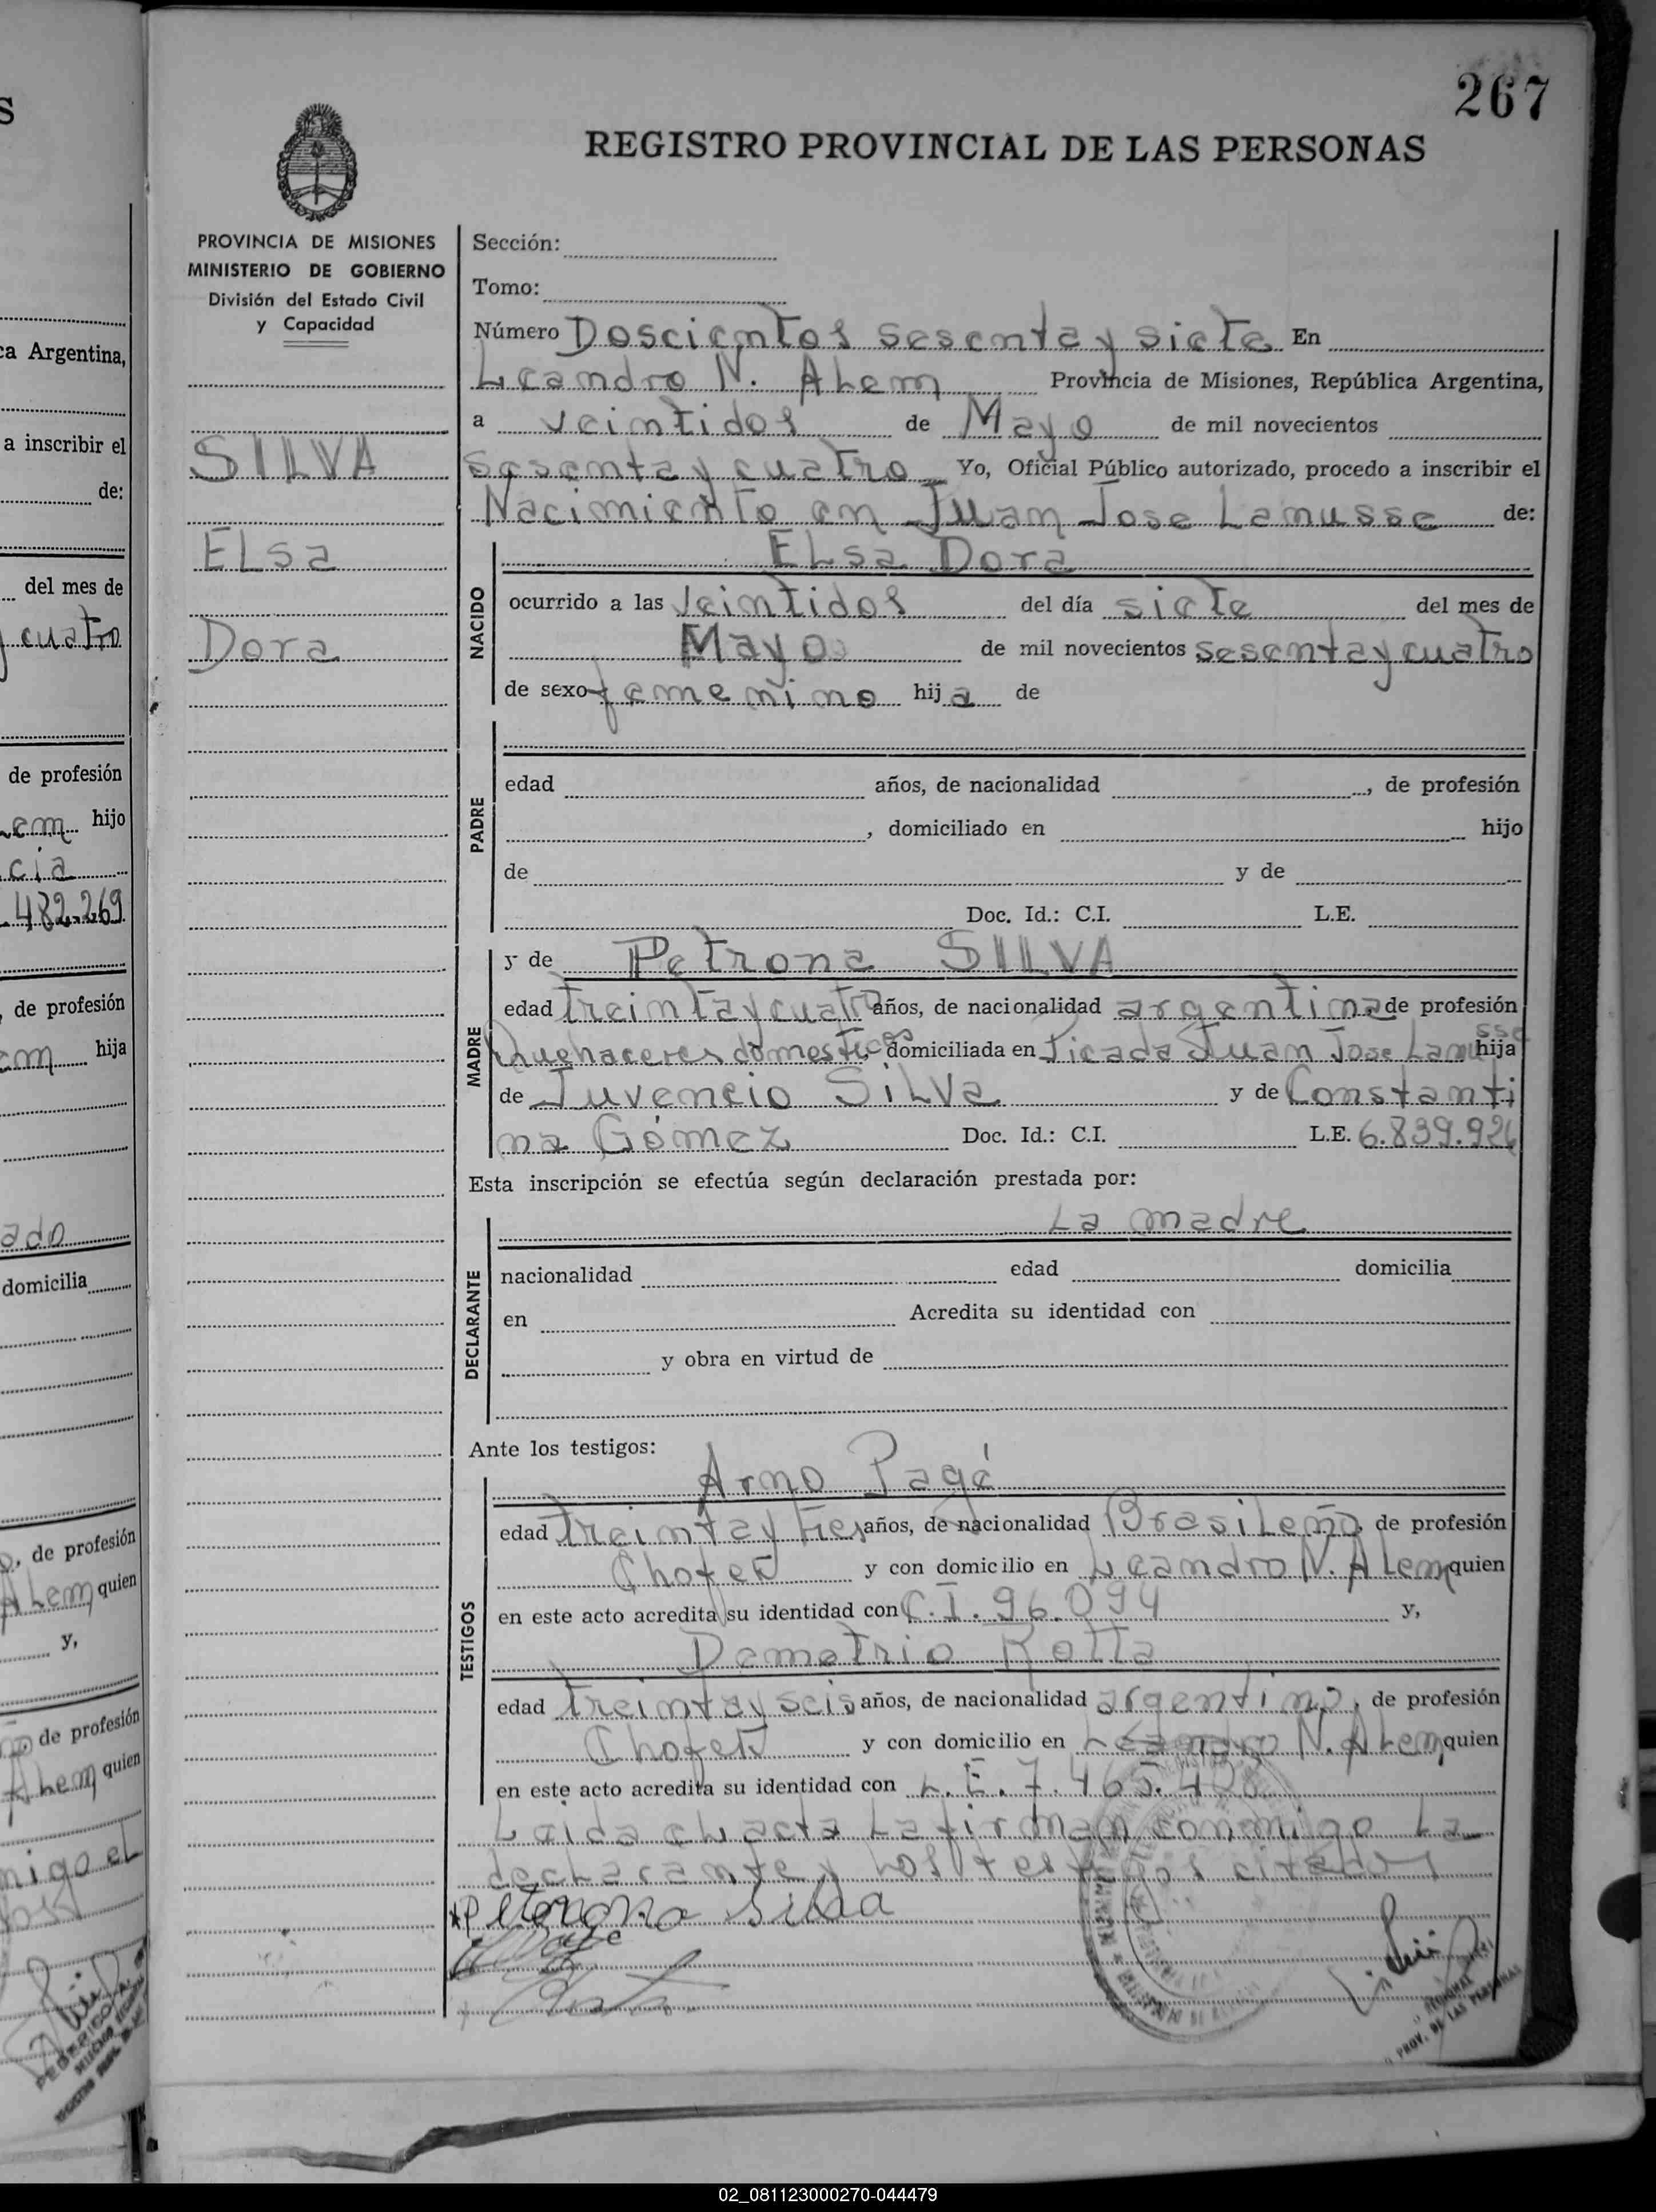 267
REGISTRO PROVINCIAL DE LAS PERSONAS
PROVINCIA DE MISIONES
MINISTERIO DE GOBIERNO
División del Estado Civil
y Capacidad
SILVA
ELsa
Dora
Sección:
Tomo:
Número Doscientos sesenta y siete En
Leandro N. ALem Provincia de Misiones, República Argentina,
a veintidos de Mayo de mil novecientos
sesenta y cuatro Yo, Oficial Público autorizado, procedo a inscribir el
Nacimiento en Juan Jose Lanusse de:
NACIDO
ELsa Dora
ocurrido a las veintidos del día siete del mes de
Mayo de mil novecientos sesenta y cuatro
de sexo femenino hija de
PADRE
edad años, de nacionalidad , de profesión
, domiciliado en hijo
de y de
Doc. Id.: C.I. L.E.
MADRE
y de Petrona SILVA
edad treinta y cuatro años, de nacionalidad argentina de profesión
Quehaceres domesticos domiciliada en Picada Juan Jose Lanusse hija
de Juvencio SiLVa y de Constanti
na Gómez Doc. Id.: C.I. L.E. 6.839.926
Esta inscripción se efectúa según declaración prestada por:
DECLARANTE
La madre
nacionalidad edad domicilia
en Acredita su identidad con
y obra en virtud de
Ante los testigos:
TESTIGOS
Arno Pagé
edad treinta y tres años, de nacionalidad BrasiLeño, de profesión
Chofer y con domicilio en Leandro N. ALem quien
en este acto acredita su identidad con C.I. 96.094 y,
Demetrio Rotta
edad treinta y seis años, de nacionalidad argentino, de profesión
Chofer y con domicilio en Leandro N. ALem quien
en este acto acredita su identidad con L.E. 7.465.
Leida eL acta La firman conmigo La
declarante y Los testigos citados
Petrona Silva
PROV. DE LAS PERSONAS
S
ca Argentina,
a inscribir el
de:
del mes de
y cuatro
de profesión
Lem hijo
cia
482.269
, de profesión
em hija
ado
domicilia
, de profesión
ALem quien
y,
de profesión
ALem quien
migo eL
02_081123000270-044479